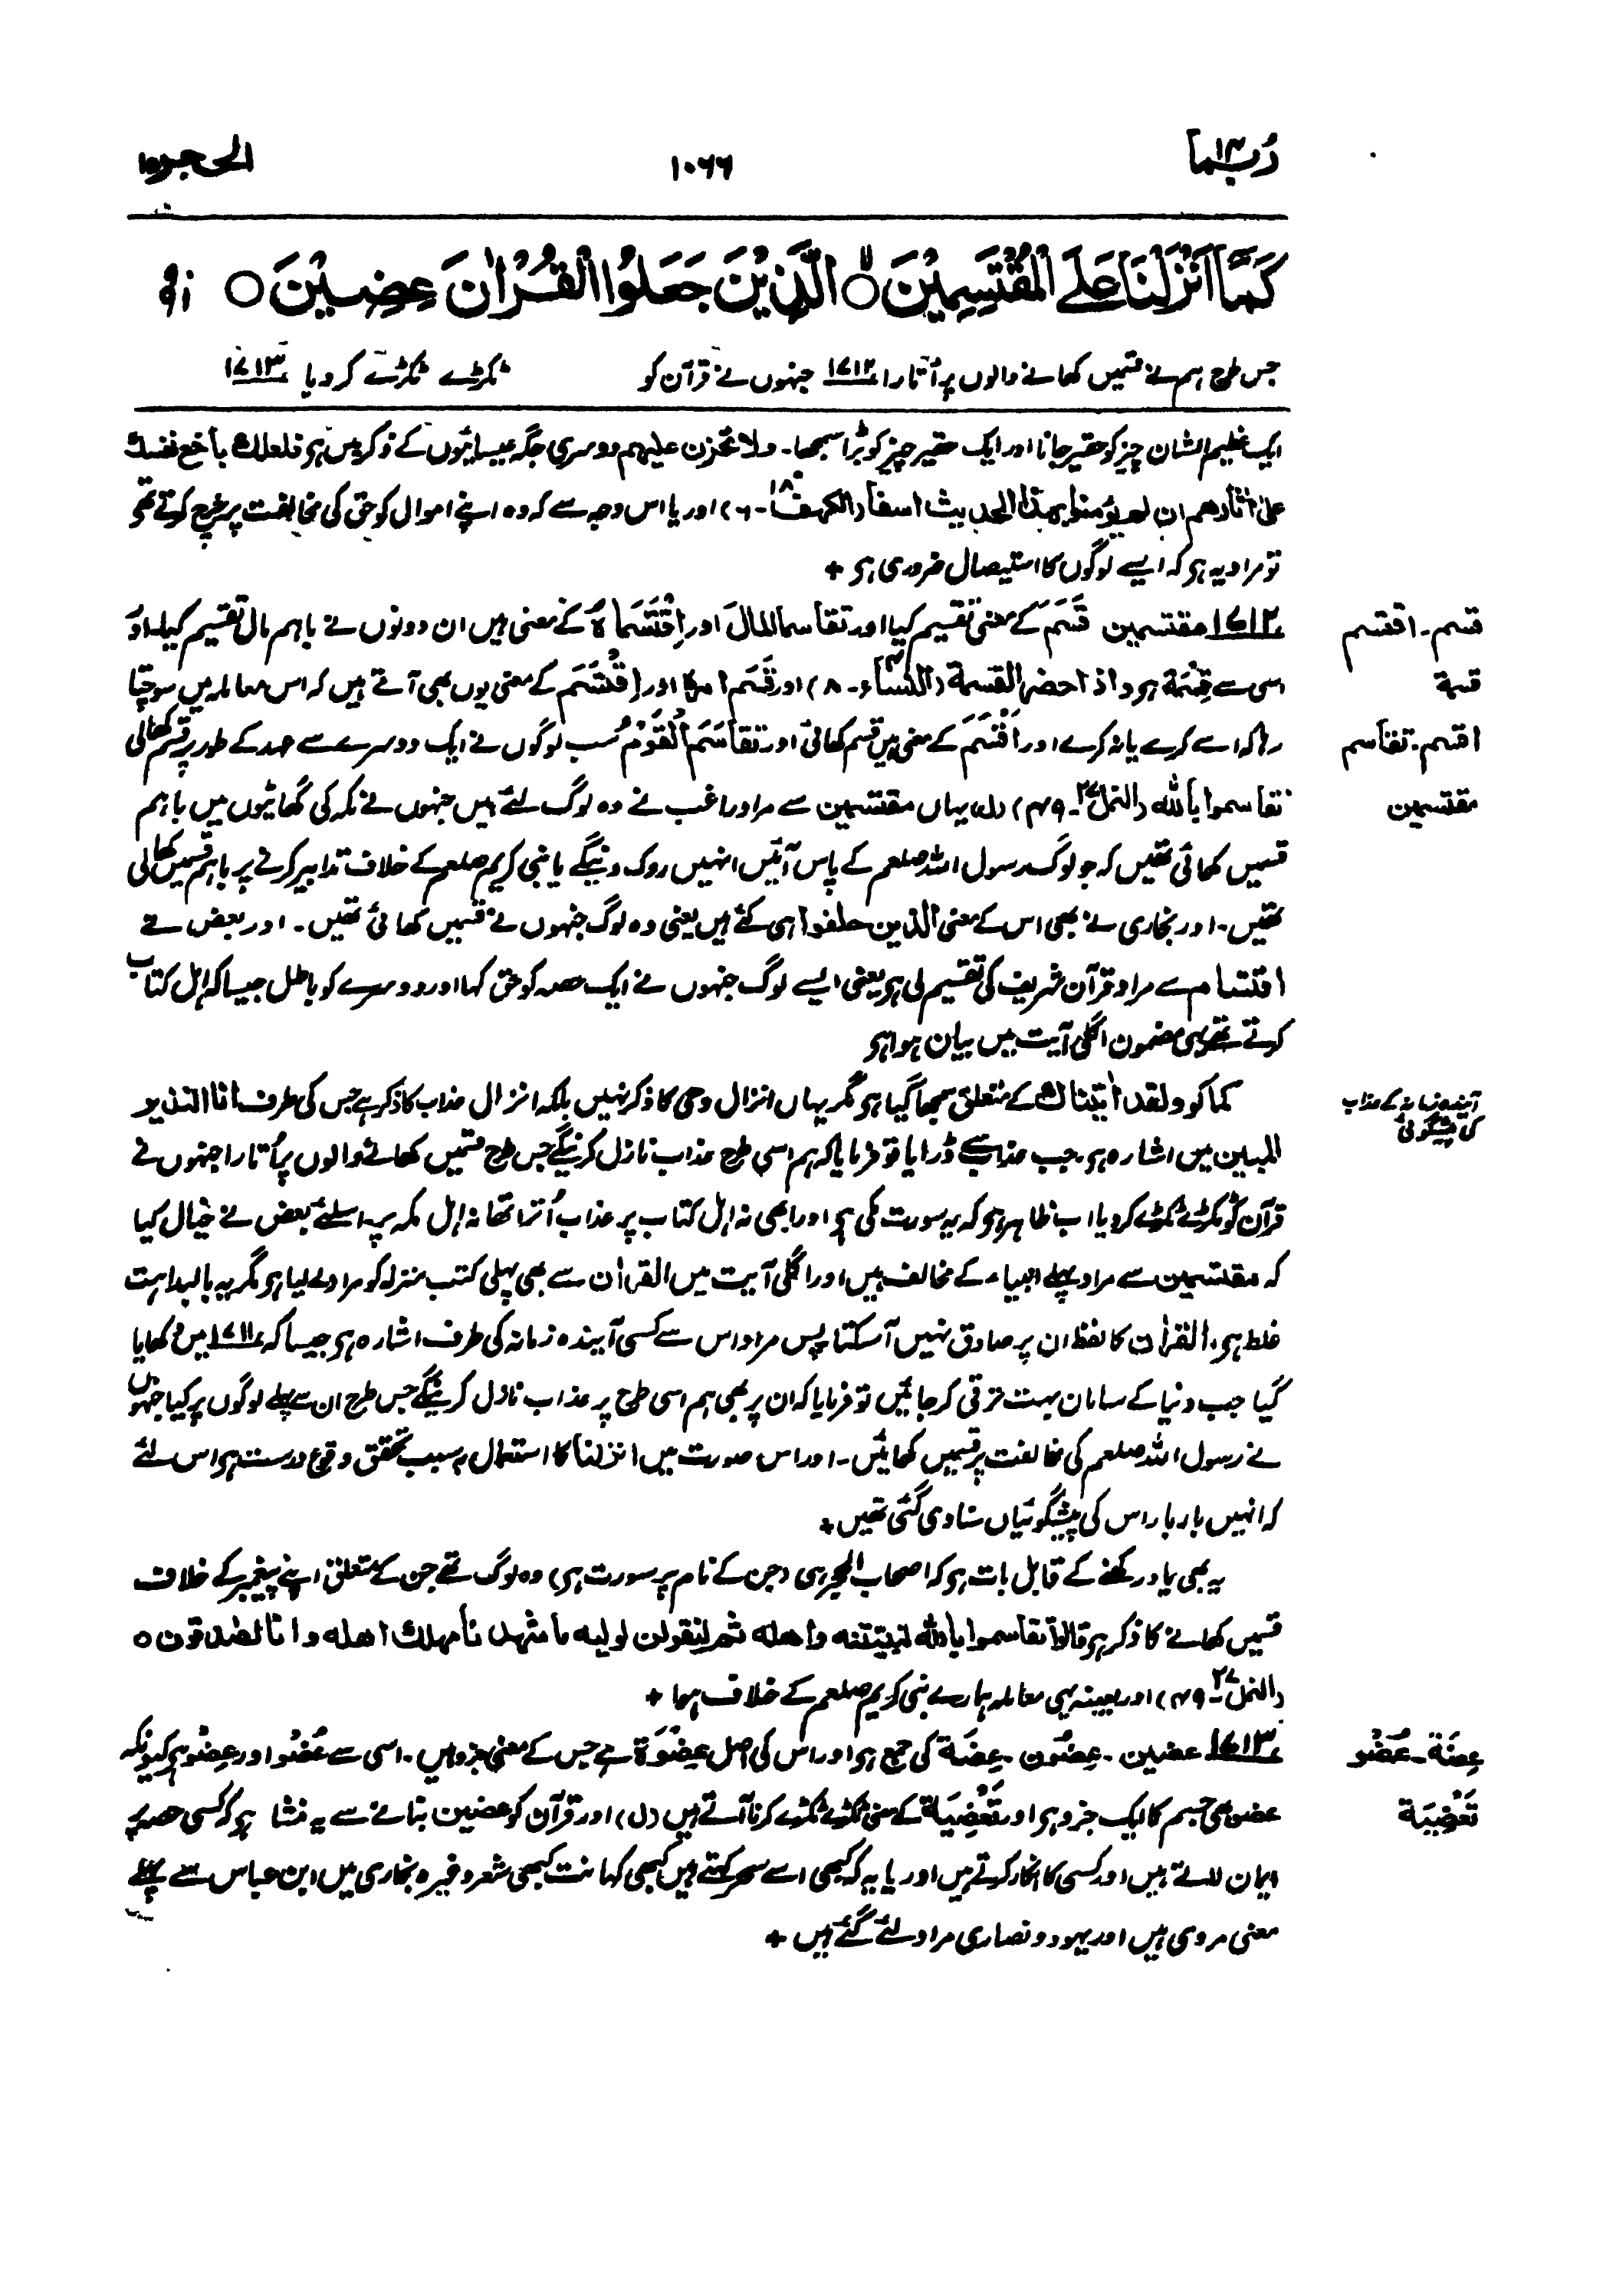 رُبما ١٤
١٠٦٦
الحجر ١٥
كَمَآ اَنْزَلْنَا عَلَى الْمُقْتَسِمِيْنَ ۙ الَّذِيْنَ جَعَلُوا الْقُرْاٰنَ عِضِيْنَ ○
جس طرح ہم نے قسمیں کھانے والوں پر اُتارا ۱۷۱۲ جنہوں نے قرآن کو ٹکڑے ٹکڑے کر دیا ۱۷۱۳
ایک عظیم الشان چیز کو حقیر جانا اور ایک حقیر چیز کو بڑا سمجھا۔ ولا تحزن علیہم دوسری جگہ عیسائیوں کے ذکر میں ہو فلعلك باخع نفسك
علیٰ اٰثارهم ان لم یؤمنوا بهذا الحدیث اسفا (الکہف ۱۸۔۶) اور یا اس وجہ سے کہ وہ اپنے اموال کو حق کی مخالفت پر خرچ کرتے تھے
تو مراد یہ ہو کہ ایسے لوگوں کا استیصال ضروری ہو +
قسم۔ اقتسم
۱۷۱۲ مقتسمین قَسَمَ کے معنی تقسیم کیا اور تقاسما المالَ اور اِقْتَسَمَاهُ کے معنی ہیں ان دونوں نے باہم مال تقسیم کیا۔ اور
قسمة
اسی سے قِسْمَة ہو واذا حضر القسمة (النساء ۴۔۸) اور قَسَمَ امرہ اور اِقْتَسَم کے معنی یوں بھی آتے ہیں کہ اس معاملہ میں سوچتا
اقسم۔ تقاسم
رہا کہ اسے کرے یا نہ کرے اور اَقْسَمَ کے معنی ہیں قسم کھائی اور تَقَاسَمَ الْقَوْمُ سب لوگوں نے ایک دوسرے سے عہد کے طور پر قسم کھالی
مقتسمین
تقاسموا باللہ (النمل ۲۷۔۴۹) (ل) یہاں مقتسمین سے مراد راغب نے وہ لوگ لئے ہیں جنہوں نے مکہ کی گھاٹیوں میں باہم
قسمیں کھائی تھیں کہ جو لوگ رسول اللہ صلعم کے پاس آئیں انہیں روک دینگے یا نبی کریم صلعم کے خلاف تدابیر کرنے پر باہم قسمیں کھالی
تھیں۔ اور بخاری نے بھی اس کے معنی الذین حلفوا ہی کئے ہیں یعنی وہ لوگ جنہوں نے قسمیں کھائی تھیں۔ اور بعض نے
اقتسام سے مراد قرآن شریف کی تقسیم لی ہو یعنی ایسے لوگ جنہوں نے ایک حصہ کو حق کہا اور دوسرے کو باطل جیسا کہ اہل کتاب
کرتے تھے یہی مضمون اگلی آیت میں بیان ہوا ہو
آیندہ زمانہ کے عذاب
کی پیشگوئی
کما کو ولقد اٰتینٰك کے متعلق سمجھا گیا ہو مگر یہاں انزال وحی کا ذکر نہیں بلکہ انزال عذاب کا ذکر ہے جس کی طرف انا النذیر
المبین میں اشارہ ہو جب عذاب سے ڈرایا تو فرمایا کہ ہم اسی طرح عذاب نازل کرینگے جس طرح قسمیں کھانے والوں پر اُتارا جنہوں نے
قرآن کو ٹکڑے ٹکڑے کر دیا اب ظاہر ہو کہ یہ سورت مکی ہو اور ابھی نہ اہل کتاب پر عذاب اُترا تھا نہ اہل مکہ پر۔ اسلئے بعض نے خیال کیا
کہ مقتسمین سے مراد پہلے انبیاء کے مخالف ہیں اور اگلی آیت میں القراٰن سے بھی پہلی کتب منزلہ کو مراد لے لیا ہو مگر یہ بالبداہت
غلط ہو۔ القراٰن کا لفظ ان پر صادق نہیں آسکتا پس مراد اس سے کسی آیندہ زمانہ کی طرف اشارہ ہو جیسا کہ ۱۷۱۱ میں دکھایا
گیا جب دنیا کے سامان بہت ترقی کر جائیں تو فرمایا کہ ان پر بھی ہم اسی طرح پر عذاب نازل کرینگے جس طرح ان سے پہلے لوگوں پر کیا جنہوں
نے رسول اللہ صلعم کی مخالفت پر قسمیں کھائیں۔ اور اس صورت میں انزلنا کا استعمال بسبب تحقق وقوع درست ہو اس لئے
کہ انہیں بار بار اس کی پیشگوئیاں سنا دی گئی تھیں +
یہ بھی یاد رکھنے کے قابل بات ہو کہ اصحاب الحجر ہی (جن کے نام پر سورت ہو) وہ لوگ تھے جن کے متعلق اپنے پیغمبر کے خلاف
قسمیں کھانے کا ذکر ہو قالوا تقاسموا باللہ لنبیتنه واهله ثم لنقولن لولیه ما شهدنا مهلك اهله وانا لصٰدقون ○
(النمل ۲۷۔۴۹) اور بعینہٖ یہی معاملہ ہمارے نبی کریم صلعم کے خلاف ہوا +
عِضَة۔ عُضْو
۱۷۱۳ عضین۔ عِضُون۔ عِضَة کی جمع ہو اور اس کی اصل عِضْوَة ہے جس کے معنی جزو ہیں۔ اسی سے عُضْو اور عِضْو ہو کیونکہ
تَعْضِیَة
عضو بھی جسم کا ایک جزو ہو اور تَعْضِیَة کے معنی ٹکڑے ٹکڑے کرنا آتے ہیں (ل) اور قرآن کو عضین بنانے سے یہ منشا ہو کہ کسی حصہ پر
ایمان لاتے ہیں اور کسی کا انکار کرتے ہیں اور یا یہ کہ کبھی اسے سحر کہتے ہیں کبھی کہانت کبھی شعر وغیرہ بخاری میں ابن عباس سے پہلے
معنی مروی ہیں اور یہود و نصاری مراد لئے گئے ہیں +